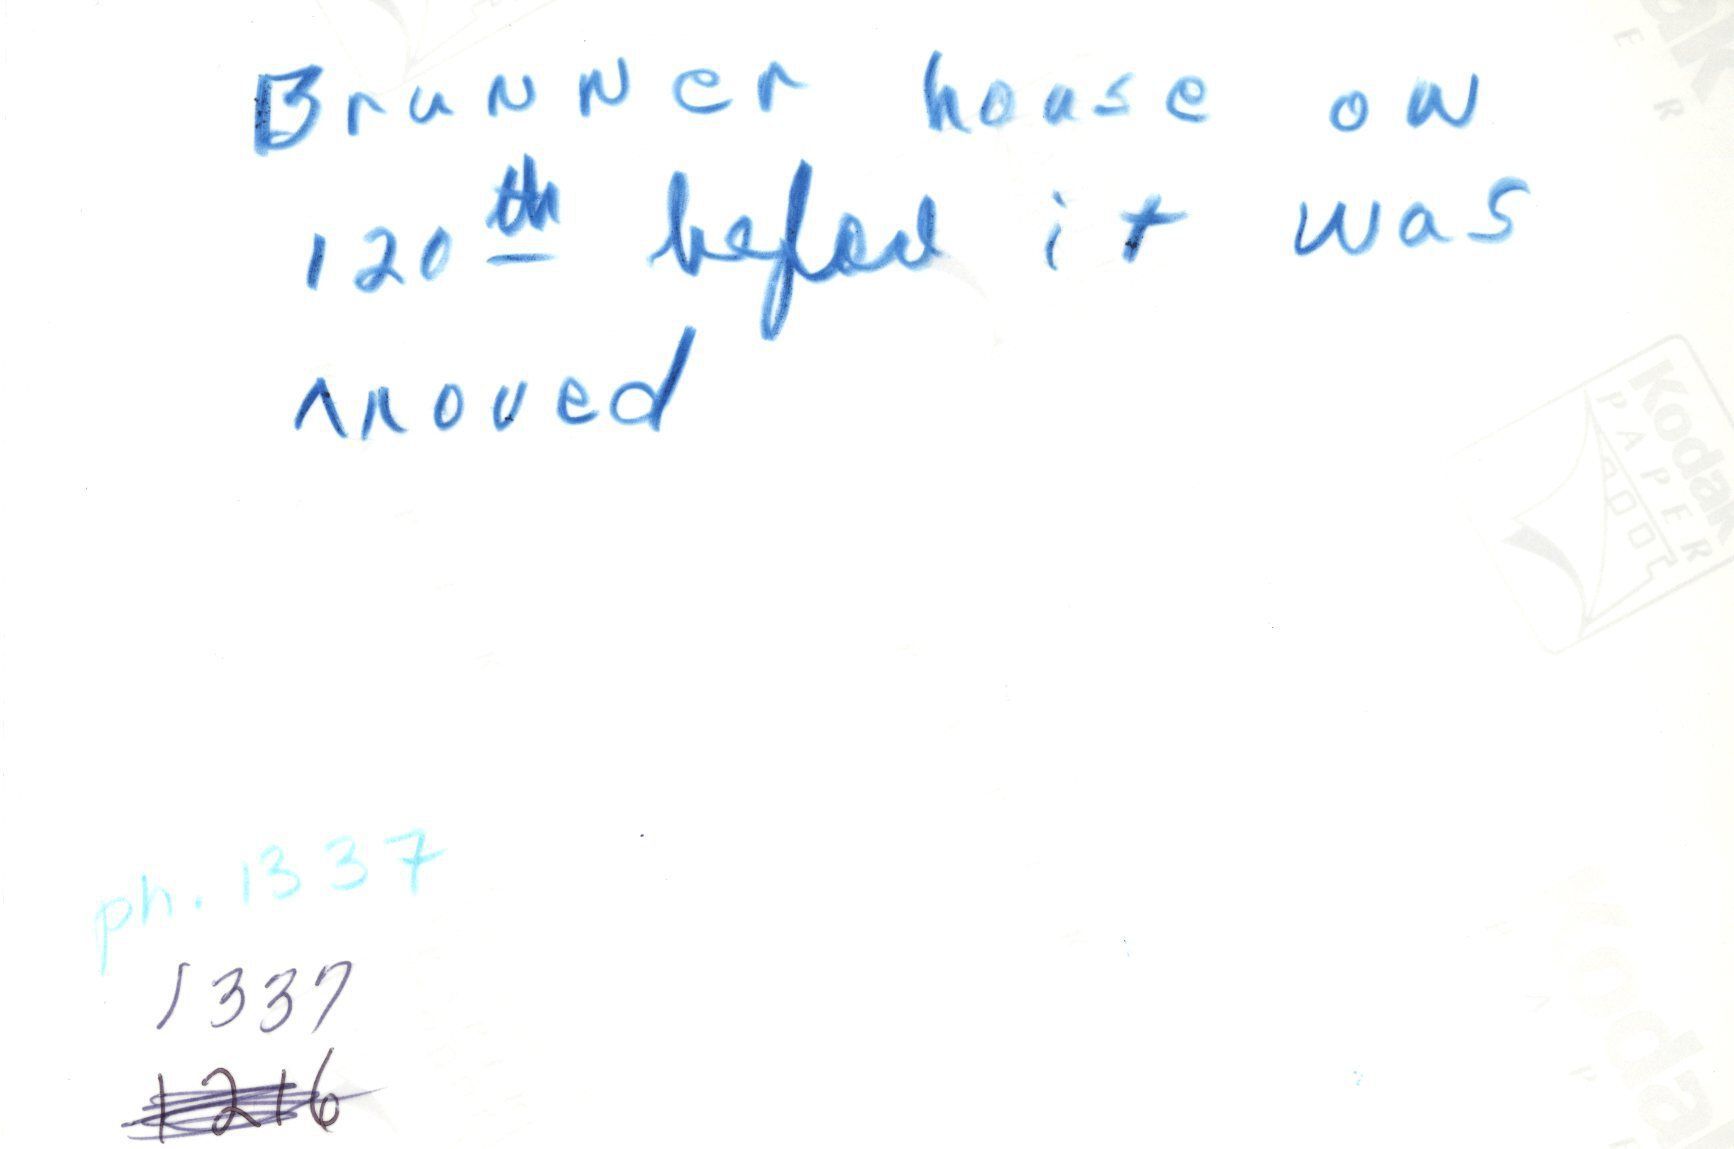 Brunner house on
120th before it was
moved
Kodak
PAPER
ph. 1337
1337
1216